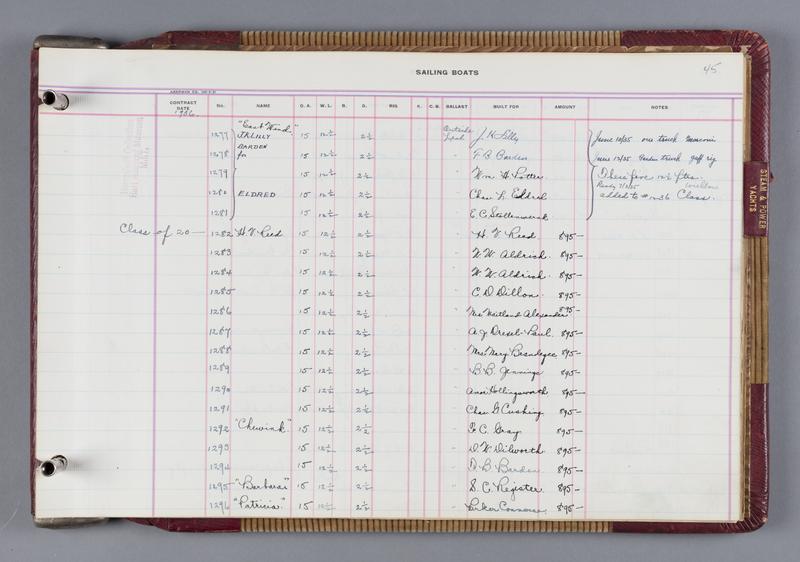 SAILING BOATS
45
CONTRACT DATE No. NAME O. A. W. L. B. D. RIG K. C. B. BALLAST BUILT FOR AMOUNT NOTES
1936
"East Wind" Outside
1277 J.K.LILLY 15 12½ 2½ J. K. Lilly June 10/35 one trunk Marconi
BARDEN
1278 for 15 12½ 2½ " F. B. Barden June 12/35 trunk gaff rig
1279 15 12½ 2½ " Wm H. Potter These five 12½ ftrs.
1280 ELDRED 15 12½ 2½ " Chas. L. Eldred added to #1236 Class.
1281 15 12½ 2½ " E. C.
Class of 20 — 1282 H. V. Reed 15 12½ 2½ " H. V. Read 895—
1283 15 12½ 2½ " W. W. Aldrich 895—
1284 15 12½ 2½ " W. W. Aldrich 895—
1285 15 12½ 2½ " C D Dillon 895—
1286 15 12½ 2½ " Mrs Maitland Alexander 895—
1287 15 12½ 2½ " A. J. Drexel Paul 895—
1288 15 12½ 2½ " Mrs. Mary 895—
1289 15 12½ 2½ " B. B. Jennings 895—
1290 15 12½ 2½ " Amor Hollingsworth 895—
1291 15 12½ 2½ " Chas. G Cushing 895—
1292 "Chewink" 15 12½ 2½ " C. Gray 895—
1293 15 12½ 2½ " D. W. Dilworth 895—
1294 15 12½ 2½ " F. B. Barden 895—
1295 "Barbara" 15 12½ 2½ " S. C. Register 895—
1296 "Patricia" 15 12½ 2½ " 895—
STEAM & POWER
YACHTS